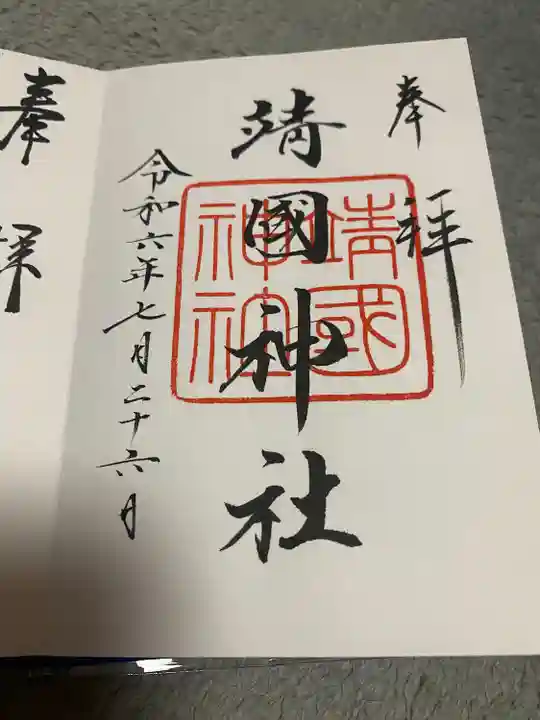 奉拝
靖國神社
靖國
神社
令和六年七月二十六日
奉拝